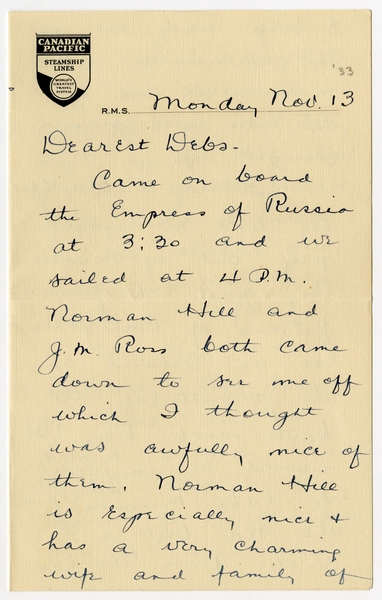 CANADIAN
PACIFIC
STEAMSHIP
LINES
WORLD'S
GREATEST
TRAVEL
SYSTEM
'33
R.M.S. Monday Nov. 13
Dearest Debs-
Came on board
the Empress of Russia
at 3:30 and we
sailed at 4 P.M.
Norman Hill and
J.M. Ross both came
down to see me off
which I thought
was awfully nice of
them. Norman Hill
is especially nice +
has a very charming
wife and family of